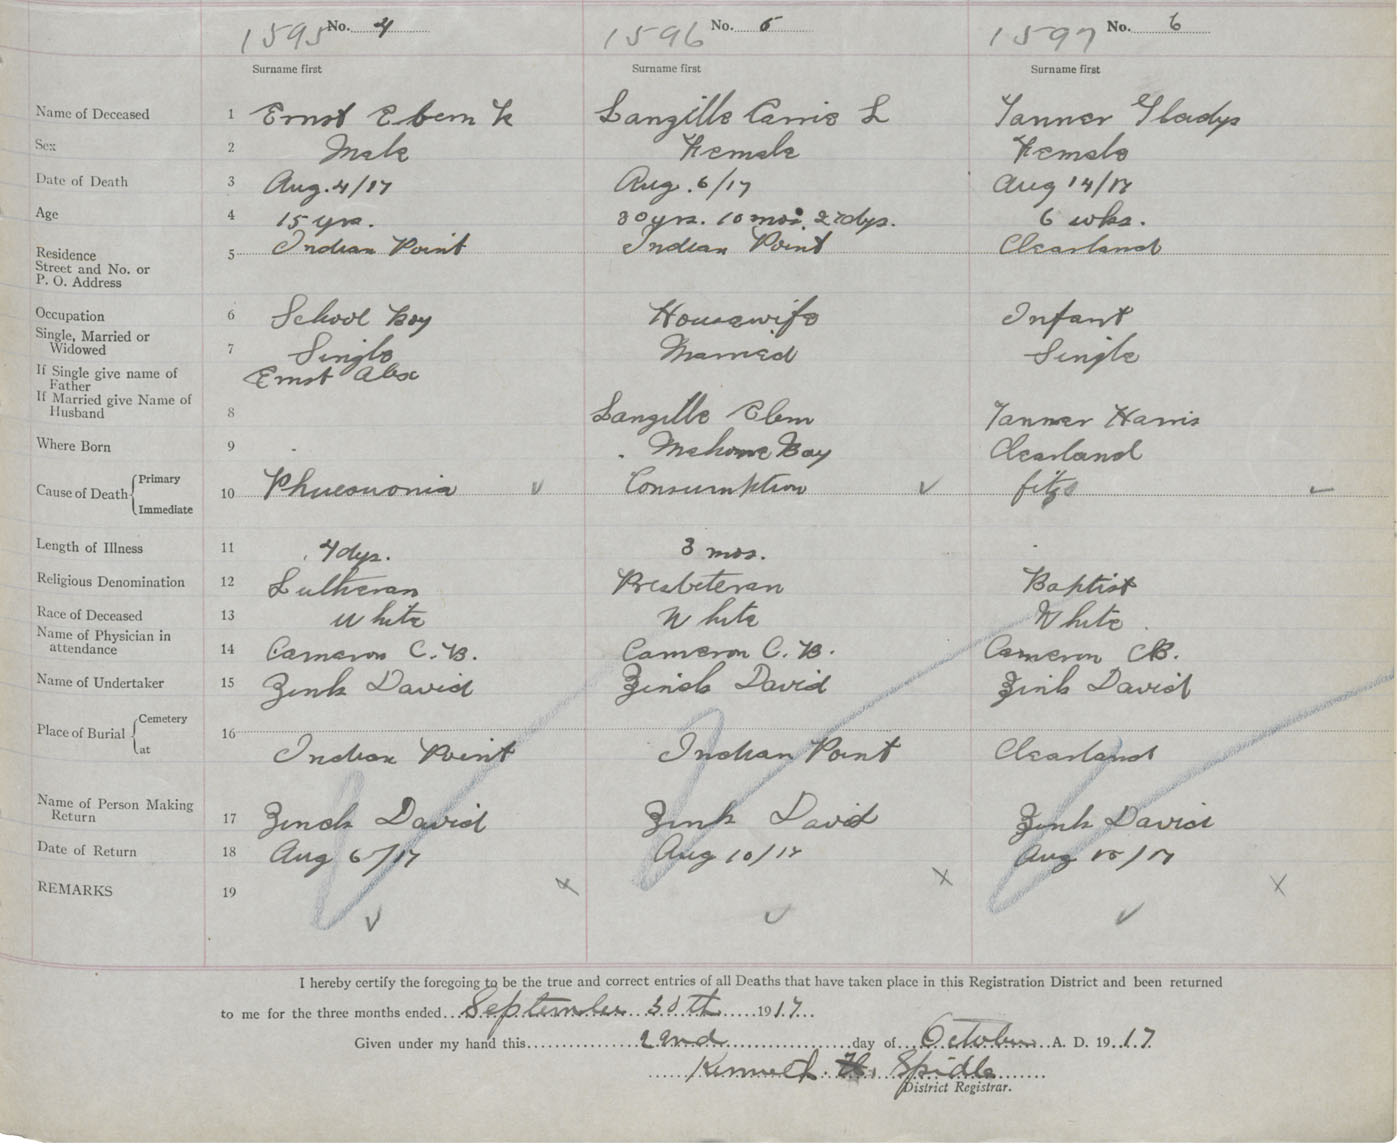 1595 No. 4 1596 No. 5 1597 No. 6
Surname first Surname first Surname first
Name of Deceased 1 Ernst Ebern K Langille Carrie L Tanner Gladys
Sex 2 Male Female Female
Date of Death 3 Aug. 4/17 Aug. 6/17 Aug 14/17
Age 4 15 yrs. 30 yrs. 10 mos. 27 dys. 6 wks.
Residence
Street and No. or
P. O. Address 5 Indian Point Indian Point Clearland
Occupation 6 School Boy Housewife Infant
Single, Married or
Widowed 7 Single Married Single
If Single give name of
Father Ernst Alex
If Married give Name of
Husband 8 Langille Elem Tanner Harris
Where Born 9 Mahone Bay Clearland
Cause of Death Primary
10 Phueouonia Consumption fits
Immediate
Length of Illness 11 4 dys. 3 mos.
Religious Denomination 12 Lutheran Presbeteran Baptist
Race of Deceased 13 White White White
Name of Physician in
attendance 14 Cameron C. B. Cameron C. B. Cameron CB.
Name of Undertaker 15 Zink David Zinck David Zink David
Place of Burial Cemetery
16
at Indian Point Indian Point Clearland
Name of Person Making
Return 17 Zinck David Zink David Zink David
Date of Return 18 Aug 6/17 Aug 10/17 Aug 18/17
REMARKS 19
I hereby certify the foregoing to be the true and correct entries of all Deaths that have taken place in this Registration District and been returned
to me for the three months ended September 30th 1917.
Given under my hand this 22nd day of October A. D. 1917
Kenneth H. Spidle
District Registrar.